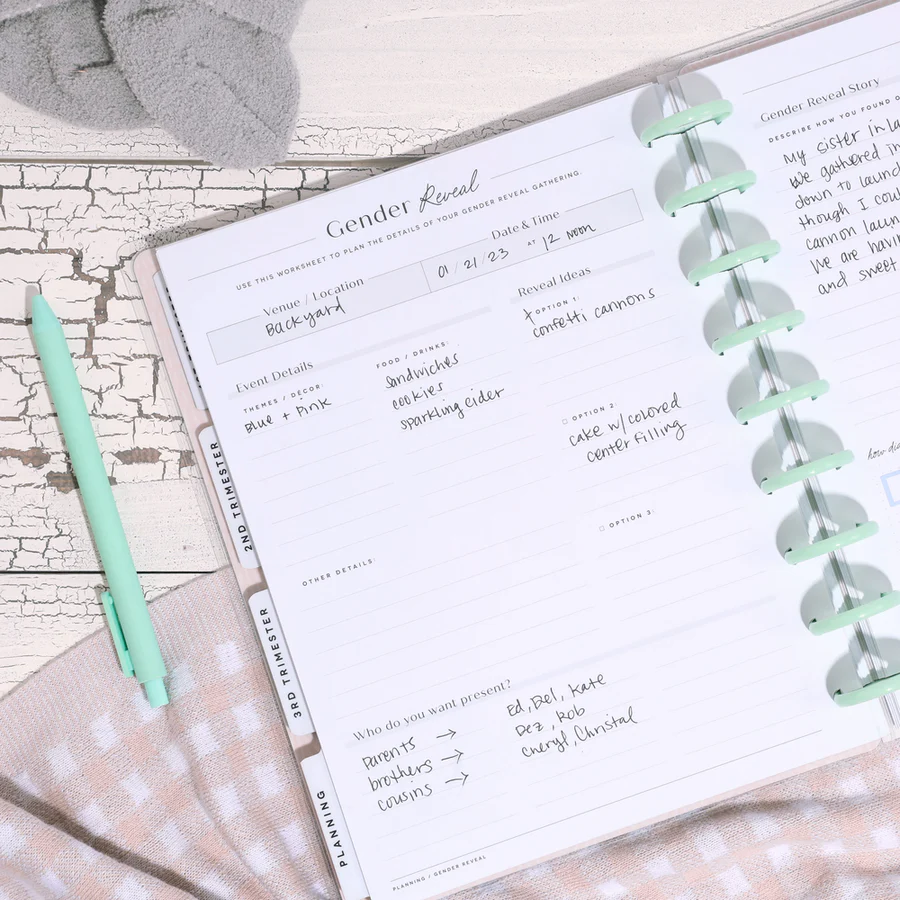 Gender Reveal
USE THIS WORKSHEET TO PLAN THE DETAILS OF YOUR GENDER REVEAL GATHERING.
Venue / Location
Backyard
Date & Time
01 / 21 / 23 AT 12 noon
Event Details
THEMES / DECOR:
Blue + Pink
FOOD / DRINKS:
Sandwiches
cookies
sparkling cider
Reveal Ideas
OPTION 1:
confetti cannons
OPTION 2:
cake w/colored
center filling
OPTION 3:
OTHER DETAILS:
Who do you want present?
parents →
brothers →
cousins →
Ed, Del, Kate
Dez, Rob
Cheryl, Christal
PLANNING / GENDER REVEAL
2ND TRIMESTER
3RD TRIMESTER
PLANNING
Gender Reveal Story
DESCRIBE HOW YOU FOUND
My sister in la
we gathered in
down to launch
though I coul
cannon laun
We are havin
and sweet
how di